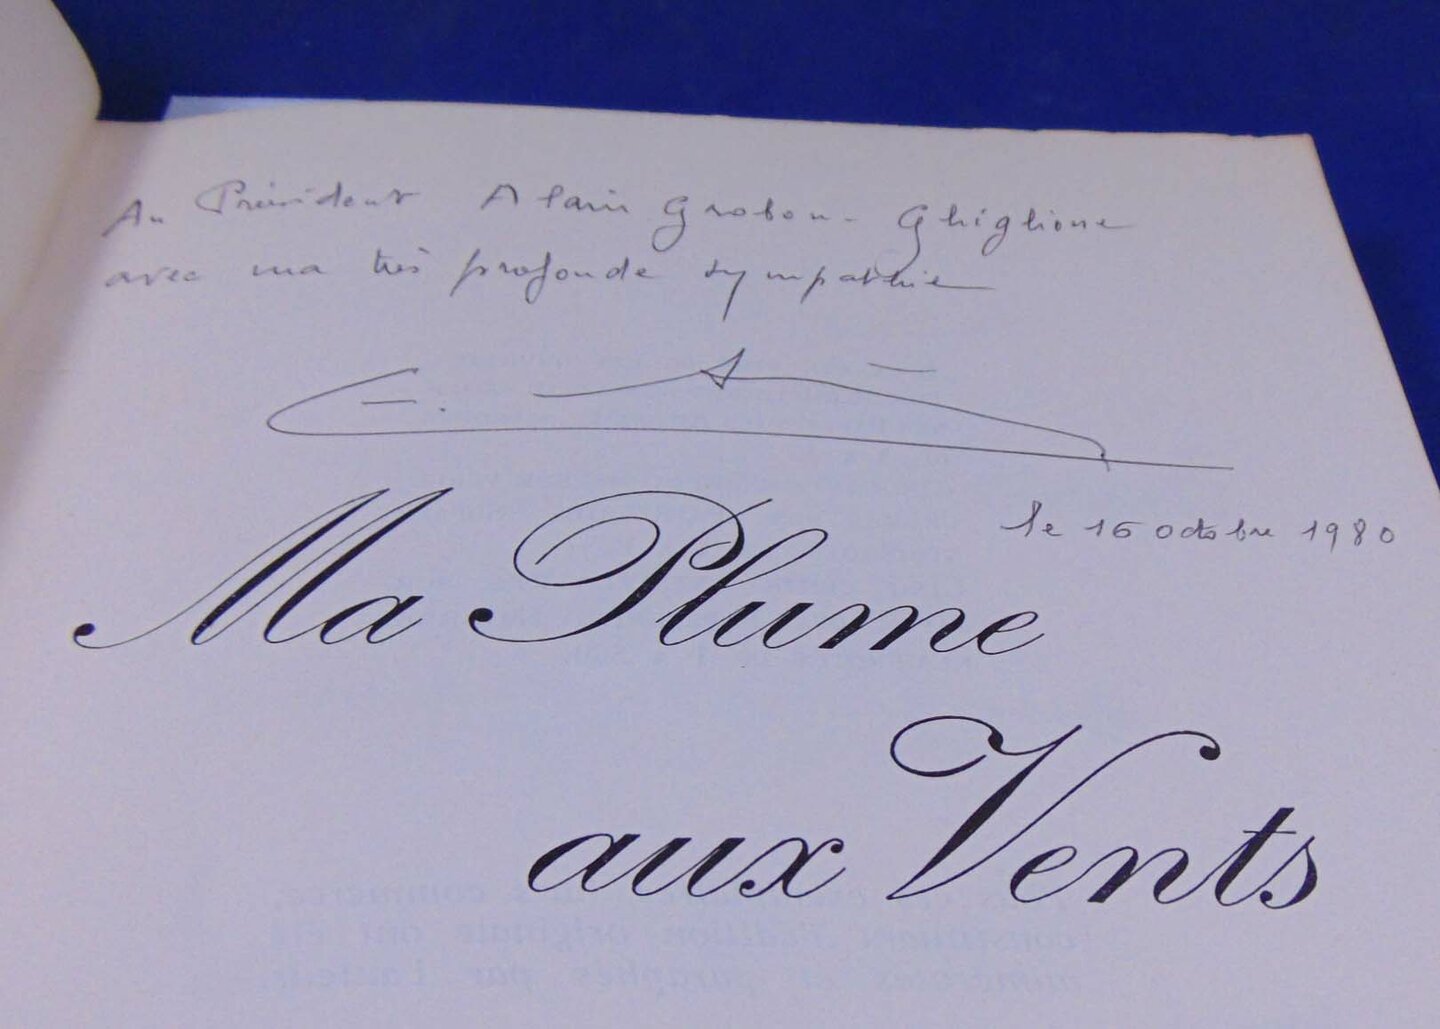 Au Président Alain Grobon-Ghiglione
avec ma très profonde sympathie
le 16 octobre 1980
Ma Plume
aux Vents